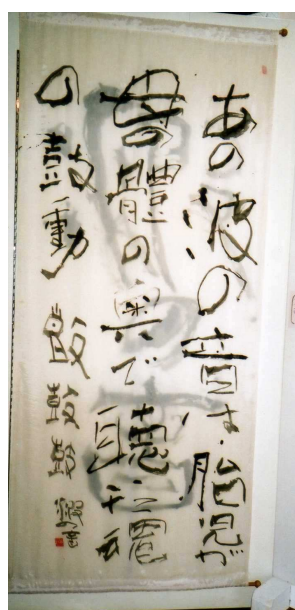 あの波の音は胎児が
母體の奥で聽
の鼓動 鼓鼓鼓